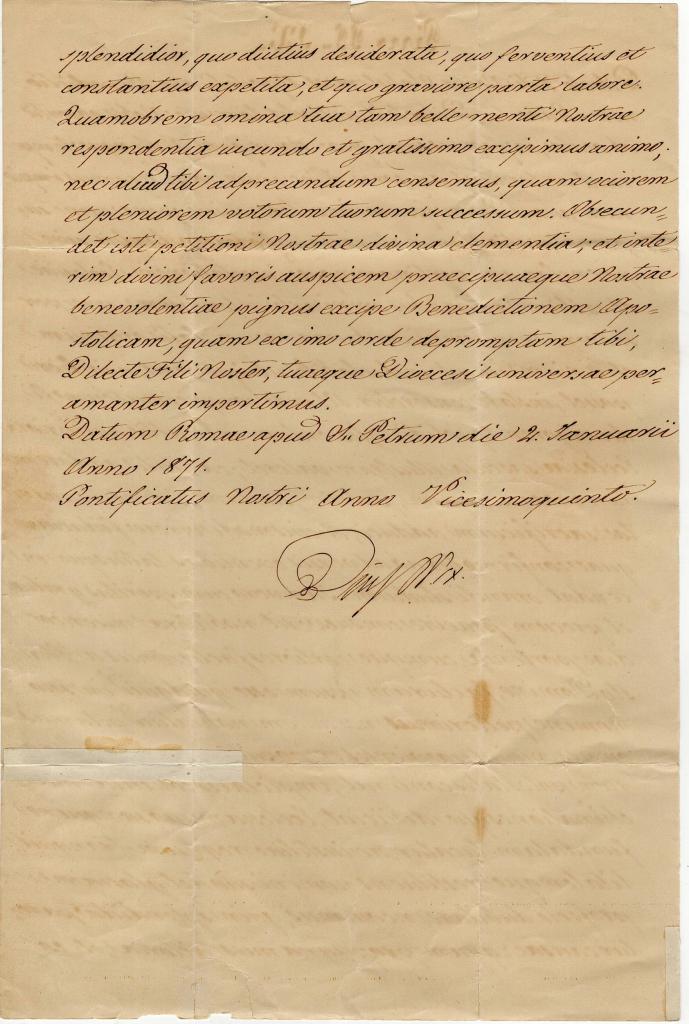 splendidior, quo diutius desiderata, quo ferventius et
constantius expetita, et quo graviore parta labore.
Quamobrem omina tua tam belle menti Nostrae
respondentia iucundo et gratissimo excipimus animo;
nec aliud tibi adprecandum censemus, quam ociorem
et pleniorem votorum tuorum successum. Obsecun=
det isti petitioni Nostrae divina clementia; et inte=
rim divini favoris auspicem praecipuaeque Nostrae
benevolentiae pignus excipe Benedictionem Apo=
stolicam, quam ex imo corde depromptam tibi,
Dilecte Fili Noster, tuaeque Dioecesi universae per=
amanter impertimus.
Datum Romae apud S. Petrum die 2. Januarii
Anno 1871.
Pontificatus Nostri Anno Vicesimoquinto.
Pius PP. IX.